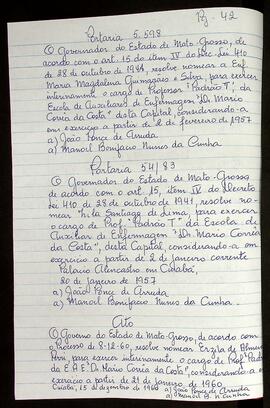 Pg. 42
Portaria 5.598
O Governador do Estado de Mato-Grosso, de
acordo com o art. 15 do item IV do Dec. Lei 410
de 28 de outubro de 1941, resolve nomear a Enf.
Maria Magdalena Guimarães e Silva, para exercer
interinamente o cargo de Professor "Padrão T", da
Escola de Auxiliares de Enfermagem "Dr. Mario
Corrêa da Costa" desta Capital, considerando-a
em exercício a partir de 2 de fevereiro de 1957
a) João Ponce de Arruda.
a) Manoel Bonifacio Nunes da Cunha
Portaria 54/83
O Governador do Estado de Mato-Grosso
de acordo com o art. 15, item IV do Decreto
Lei 410 de 28 de outubro de 1941, resolve no-
mear Santiago de Lima, para exercer
o cargo de Prof. "Padrão T" da Escola de
Auxiliar de Enfermagem "Dr. Mario Corrêa
da Costa", desta Capital, considerando-a em
exercício a partir de 2 de janeiro corrente
Palacio Alencastro em Cuiabá,
20 de janeiro de 1957
a) João Ponce de Arruda
a) Manoel Bonifacio Nunes da Cunha
Ato
O Governo do Estado de Mato-Grosso, de acordo com
o Processo de 8-12-60, resolve nomear de
para exercer interinamente o cargo de Prof. Padrão
da E A E "Dr Mario Corrêa da Costa", considerando-a em
exercício a partir de 21 de janeiro de 1960
Cuiabá, 15 de dezembro de 1960 a) João Ponce de Arruda
a) Manoel B. N. Cunha